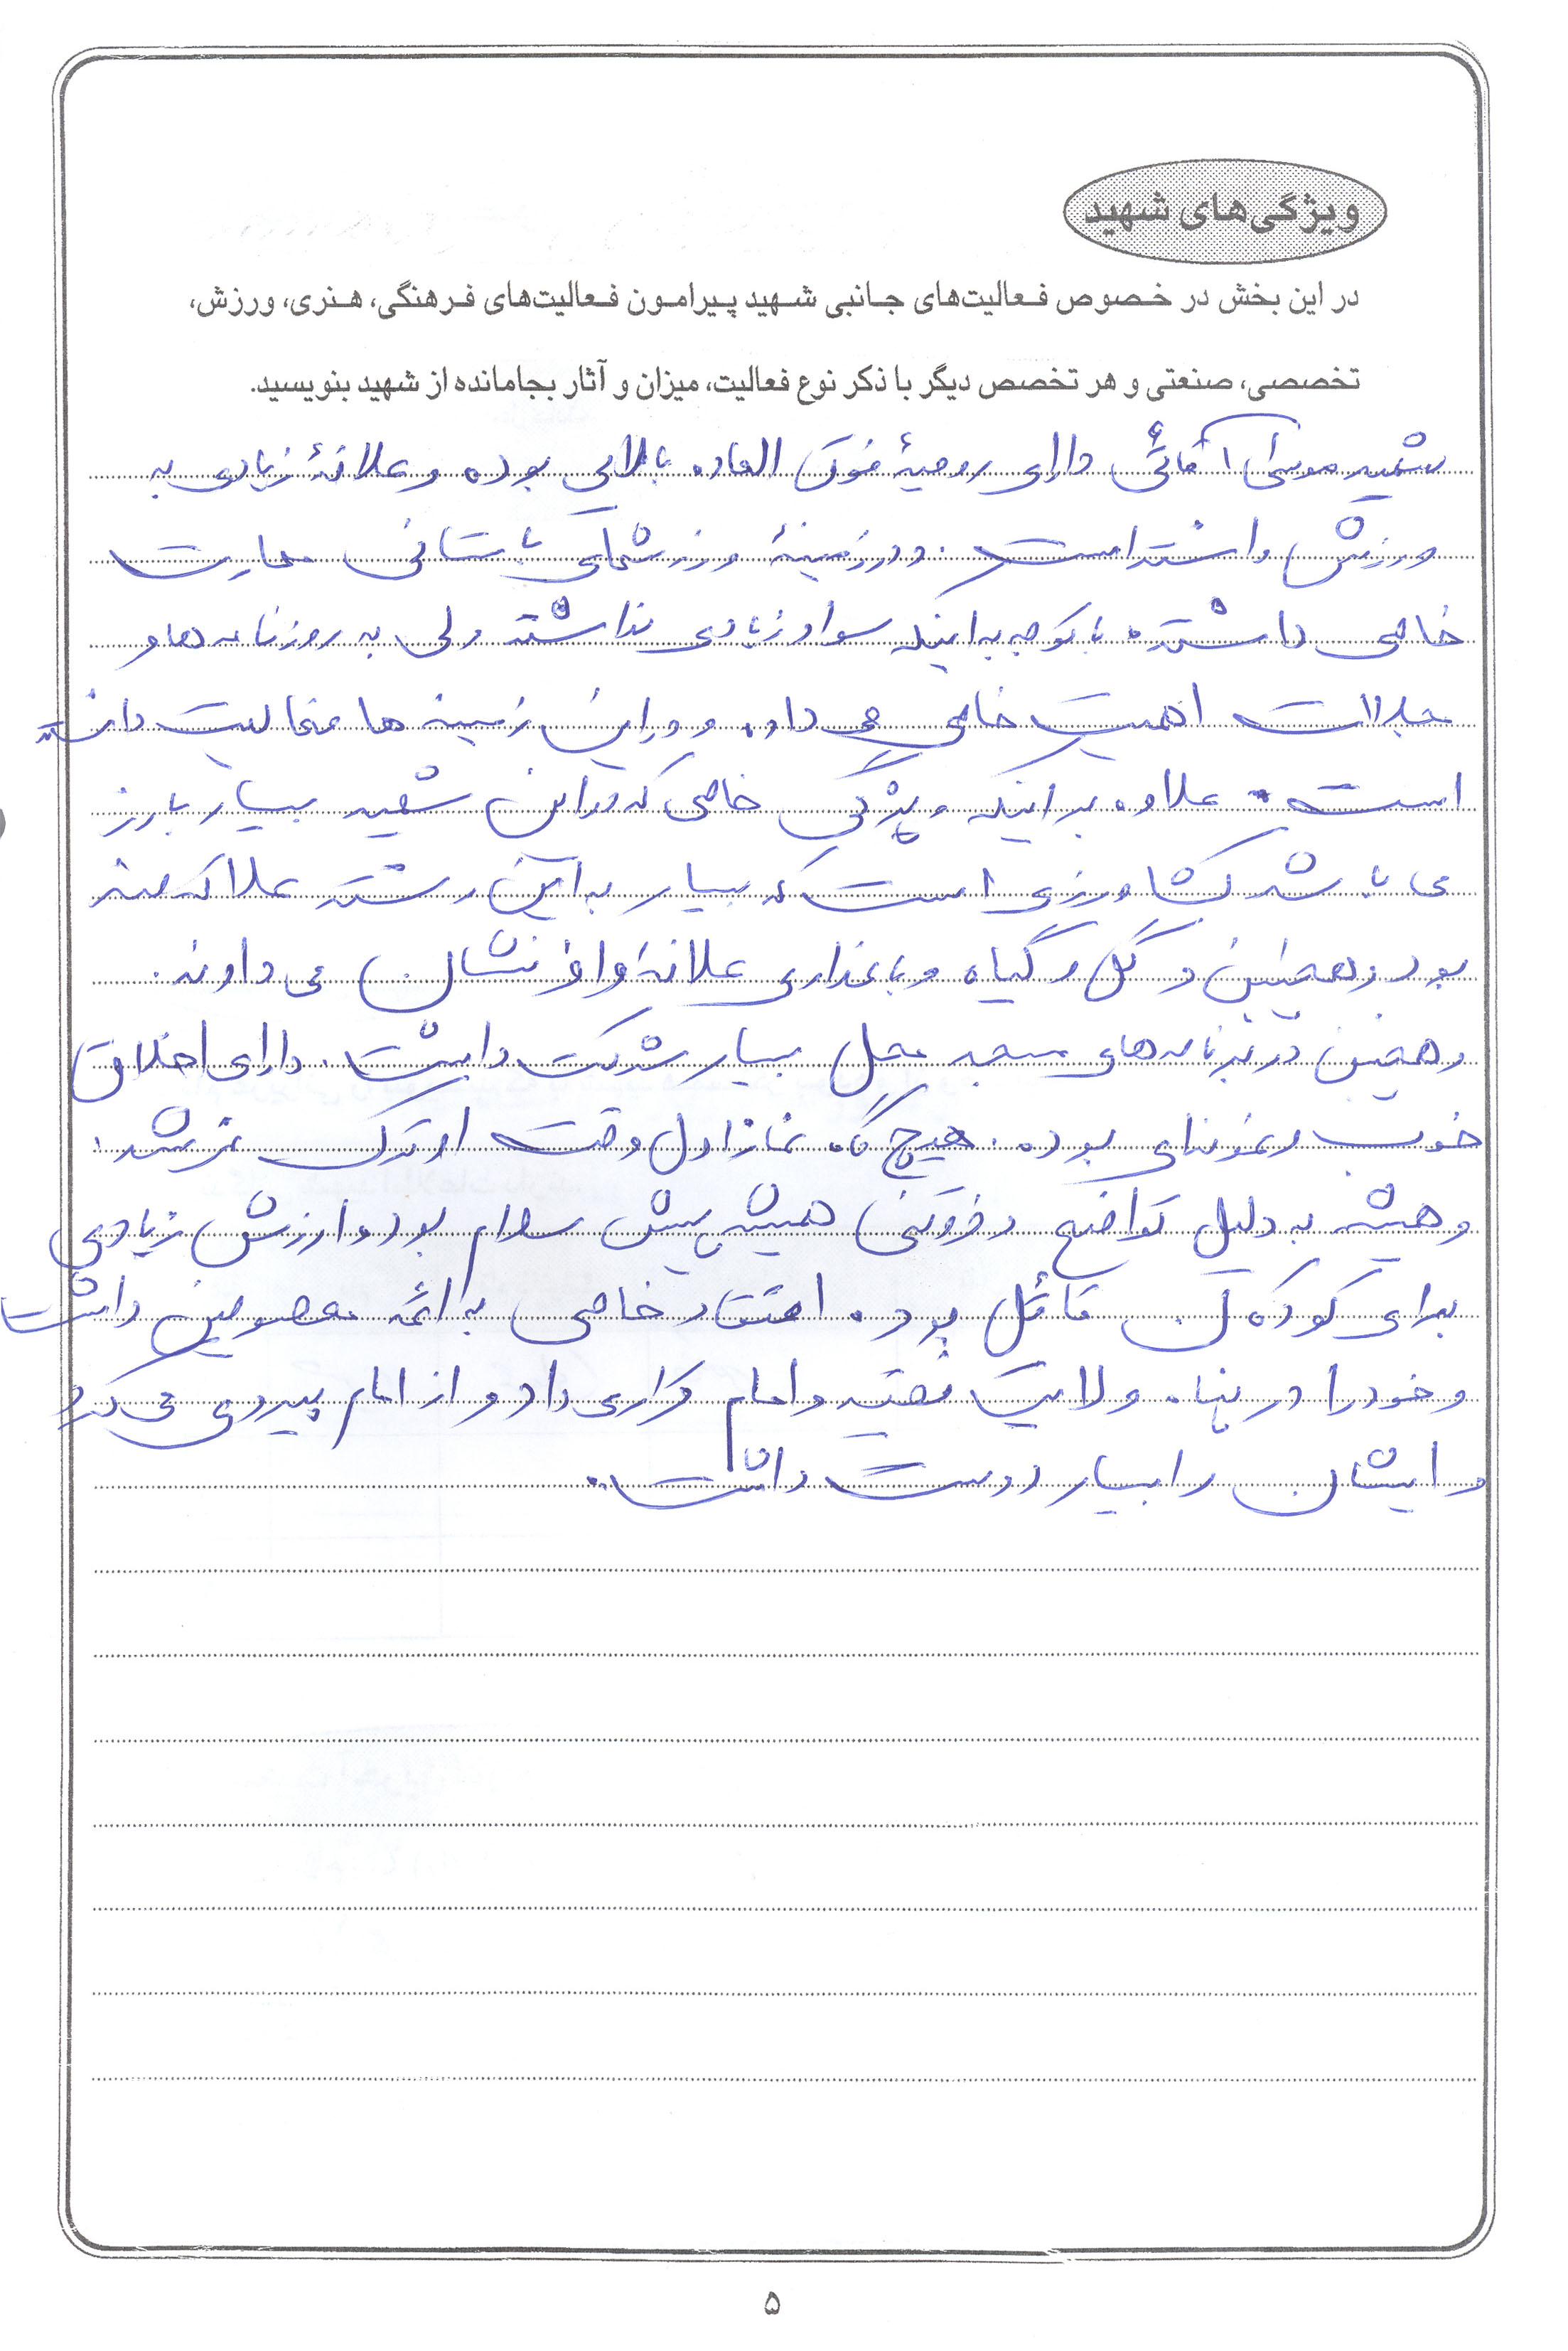 ویژگی‌های شهید
در این بخش در خصوص فعالیت‌های جانبی شهید پیرامون فعالیت‌های فرهنگی، هنری، ورزش،
تخصصی، صنعتی و هر تخصص دیگر با ذکر نوع فعالیت، میزان و آثار بجامانده از شهید بنویسید.
شهید موسی آقائی دارای روحیهٔ فوق العاده بالایی بوده و علاقهٔ زیادی به
ورزش داشته است. و در زمینهٔ ورزشهای باستانی مهارت
خاصی داشته. با توجه به اینکه سواد زیادی نداشته ولی به روزنامه ها و
مجلات اهمیت خاصی می داد. و در این زمینه ها فعالیت داشته
است. علاوه بر اینکه ویژگی خاصی که در این شهید بسیار بارز
می باشد کشاورزی است که بسیار به این رشته علاقه مند
بود و همچنین و گل و گیاه و باغداری علاقهٔ وافر نشان می دادند.
و همچنین در برنامه های مسجد محل بسیار شرکت داشت. دارای اخلاق
خوب و نمونه‌ای بوده. هیچ گاه نماز اول وقت او ترک نمی شد.
و همیشه به دلیل تواضع و فروتنی همیشه پیش سلام بود و ارزش زیادی
برای کودکان قائل بود. اعتقاد خاصی به ائمه معصومین داشت
و خود را در پناه ولایت فقیه و امام قرار می داد و از امام پیروی می کرد
و ایشان را بسیار دوست داشت.
۵